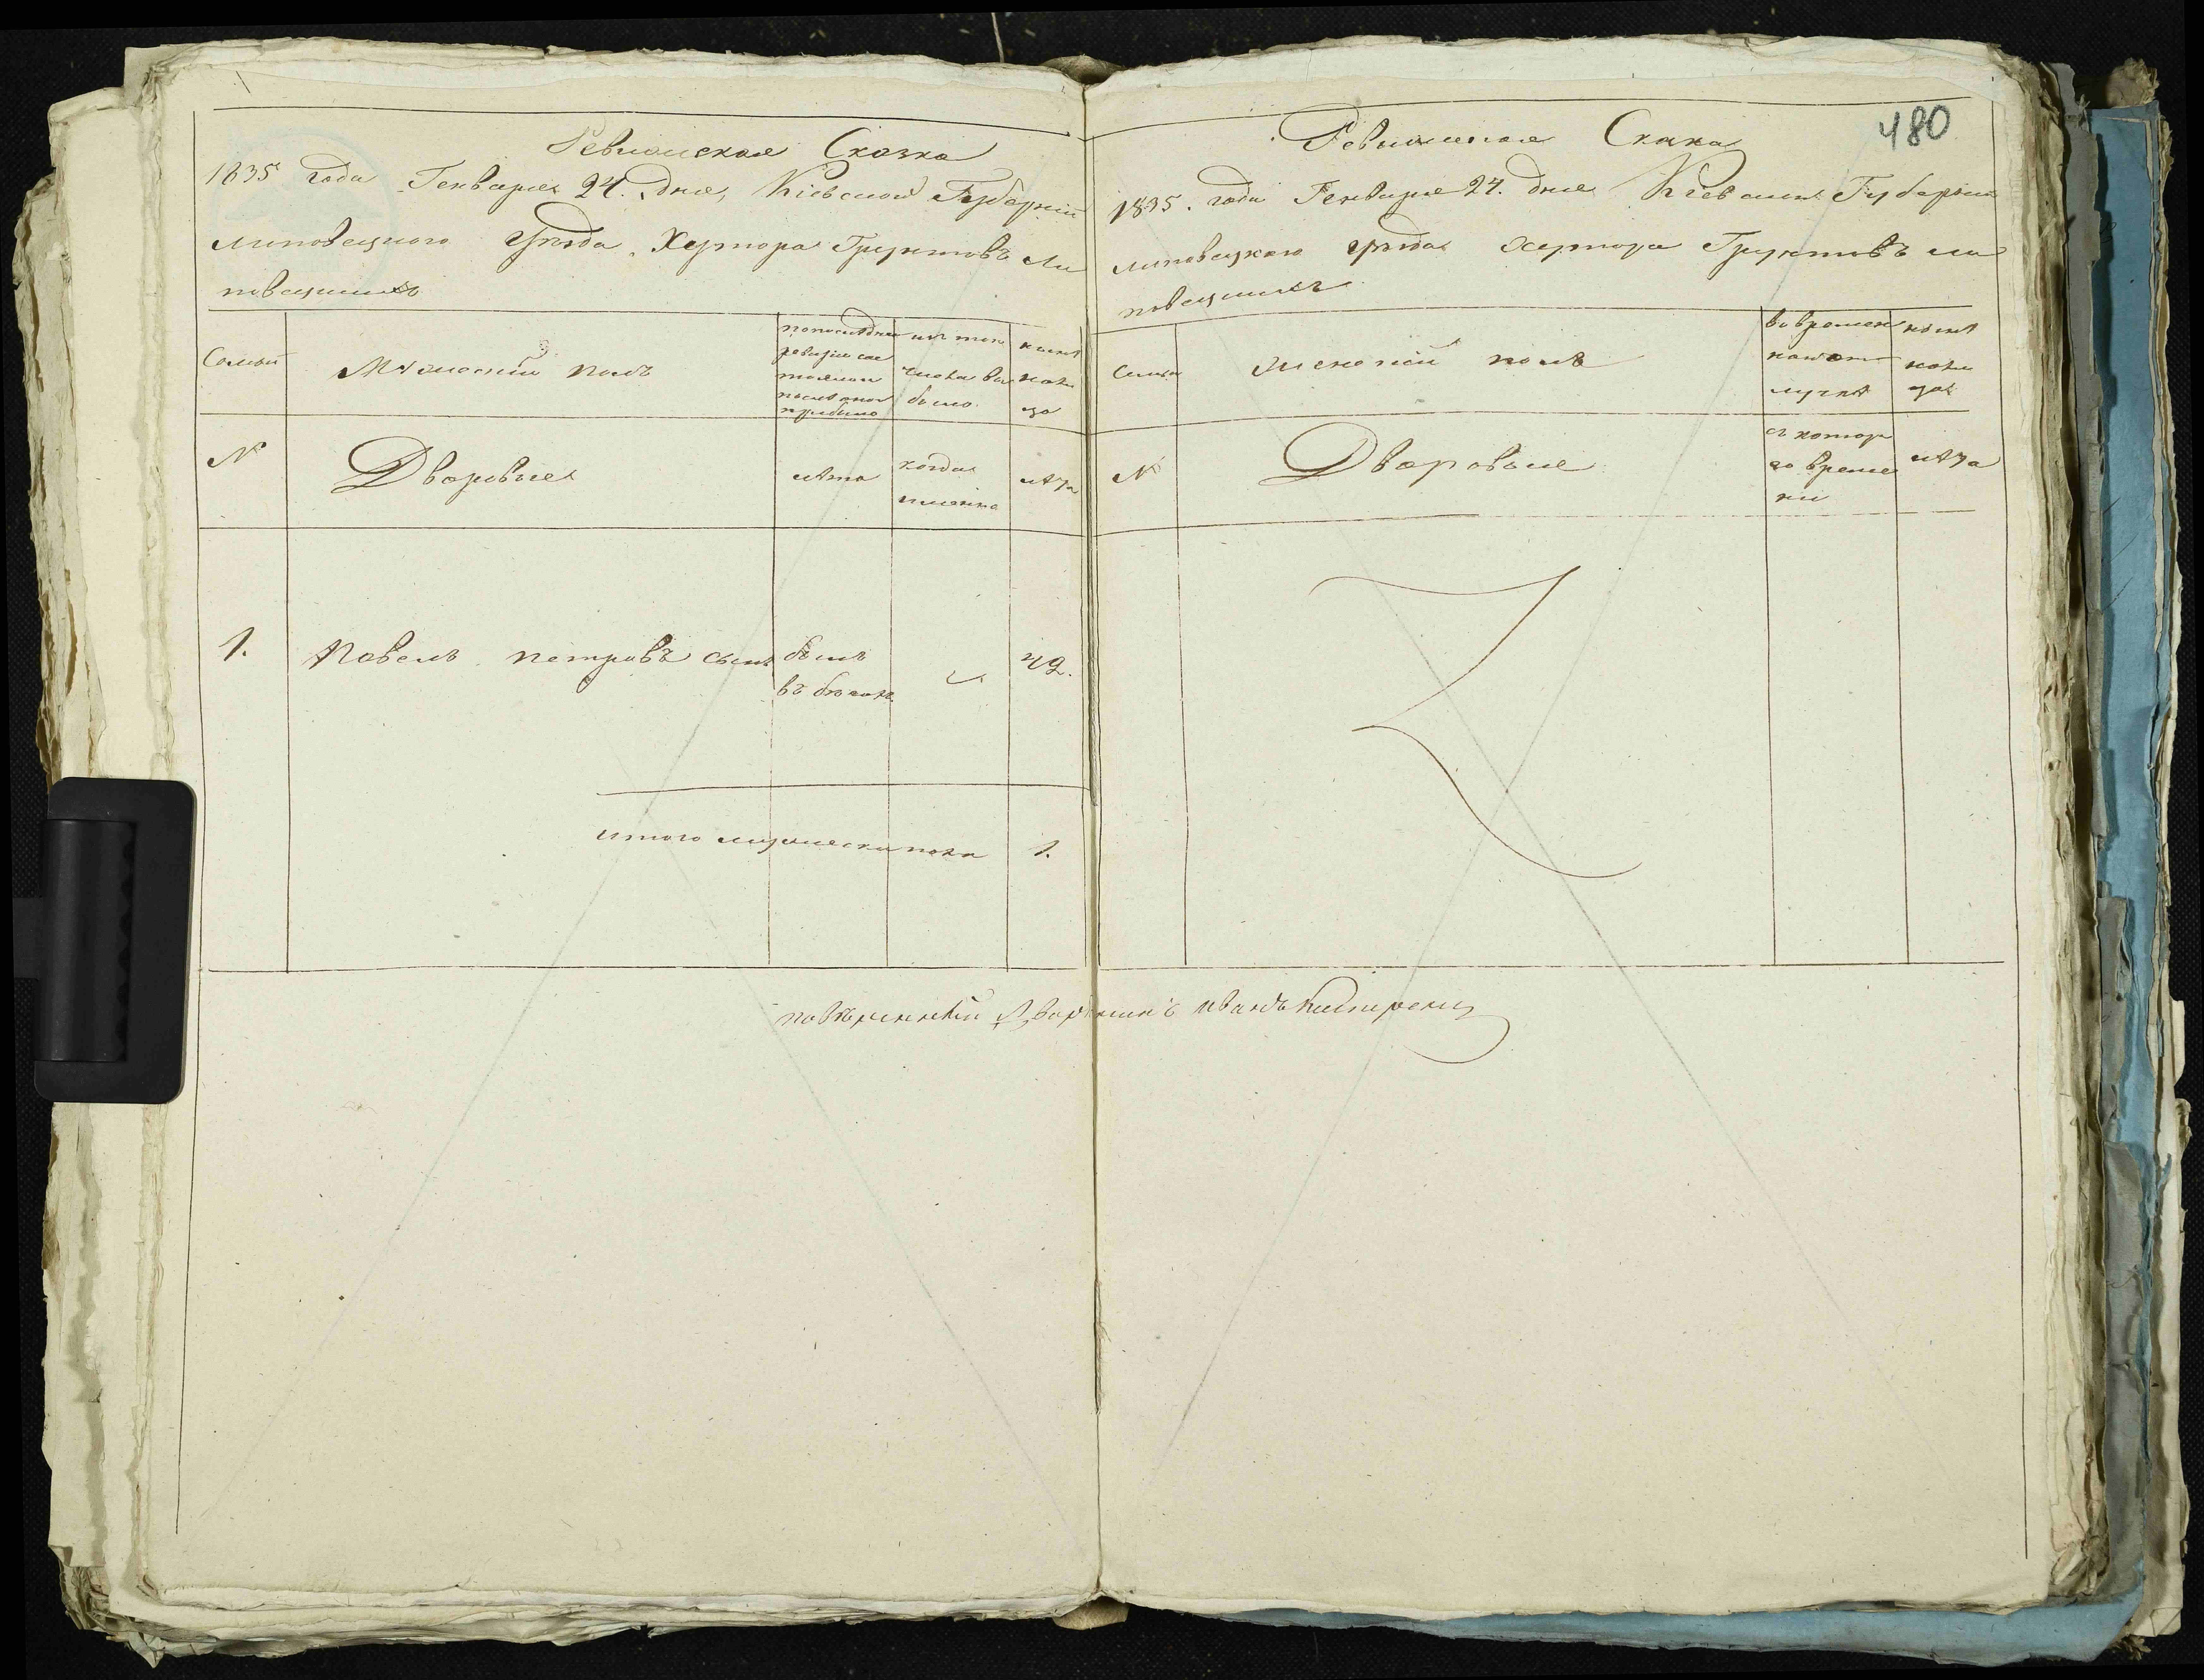 Ревизская Сказка
1835 года Генваря 24. дня, Кіевской Губерніи
Липовецкого уѣзда, Хутора Грунтовъ Ли
повецкихъ
Семьи
Мужескій полъ
по последней ревизіи состояло и после оной прибыло
изъ того числа выбыло
ныне на лицо
№
Дворовые
лѣта
когда именно
лѣта
1.
Павелъ петровъ сынъ
былъ
въ бѣгахъ
42.
итого мужеска пола 1.
480
Ревизская Скажа
1835. года Генваря 24. дня Кіевской Губерніи
липовецкого уѣзда хутора Грунтовъ ли
повецкихъ
Семьи
женскій полъ
во временной отлучкѣ
ныне на лицо
№
Дворовые
съ которого времени
лѣта
повѣренный Дворянинъ иванъ